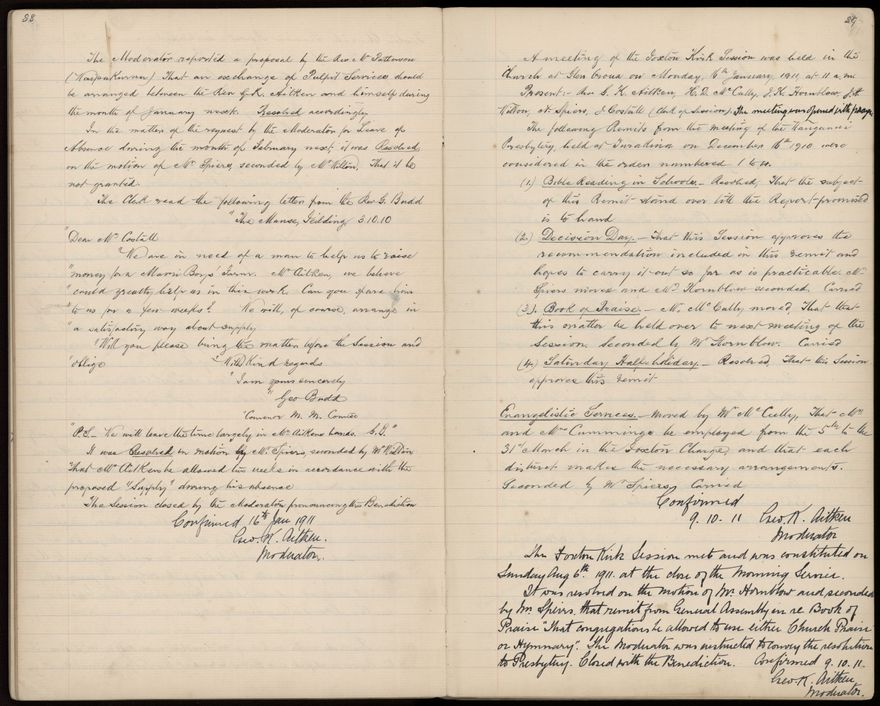 88
The Moderator reported a proposal by the Rev Mr Patterson
(Waipukurau) That an exchange of Pulpit Services should
be arranged between the Rev G.K. Aitken and himself during
the month of January next. Resolved accordingly
In the matter of the request by the Moderator for Leave of
Absence during the month of February next, it was Resolved,
on the motion of Mr Spiers, seconded by Mr Walton, That it be
not granted.
The Clerk read the following letter from the Rev G. Budd
"The Manse, Feilding 3.10.10
"Dear Mr Costall
"We are in need of a man to help us to raise
"money for a Maori Boys' Farm. Mr Aitken, we believe
"could greatly help us in this work. Can you spare him
"to us for a few weeks? We will, of course, arrange in
"a satisfactory way about supply
"Will you please bring the matter before the Session and
"oblige "With kind regards
"I am yours sincerely
"Geo Budd
"Convenor M. M. Comtee
"P.S. – We will leave the time largely in Mr Aitkens hands. G.B."
It was Resolved on motion by Mr Spiers, seconded by Mr Walton
That Mr Aitken be allowed two weeks in accordance with the
proposed "Supply" during his absence
The Session closed by the Moderator pronouncing the Benediction
Confirmed 16th Jan 1911
Geo. K. Aitken.
Moderator.
89
A meeting of the Foxton Kirk Session was held in the
Church at Glen Oroua on Monday, 16th January, 1911 at 11 a.m
Present: – Rev G. K. Aitken, H.D. McCully, J.K. Hornblow, J.A
Walton, A. Spiers, J Costall (Clerk of Session). The meeting was opened with prayer
The following Remits from the meeting of the Wanganui
Presbytery, held at on December 16th 1910 were
considered in the order numbered 1 to 4.
(1.) Bible Reading in Schools. – Resolved, That the subject
of this Remit stand over till the Report promised
is to hand
(2.) Decision Day. – That this Session approves the
recommendation included in this remit and
hopes to carry it out so far as is practicable Mr
Spiers moved and Mr Hornblow seconded. Carried
(3.) Book of Praise. – Mr McCully moved, That that
this matter be held over to next meeting of the
Session. Seconded by Mr Hornblow. Carried
(4.) Saturday Half-holiday. – Resolved, That this Session
approves this remit
Evangelistic Services. – Moved by Mr McCully, That Mr
and Mrs Cummings be employed from the 5th to the
31st March in the Foxton Charge, and that each
district makes the necessary arrangements.
Seconded by Mr Spiers, Carried
Confirmed
9. 10. 11 Geo. K. Aitken
Moderator
The Foxton Kirk Session met and was constituted on
Sunday Aug 6th. 1911. at the close of the Morning Service.
It was resolved on the motion of Mr. Hornblow and seconded
by Mr. Speirs, that remit from General Assembly in re Book of
Praise "That congregations be allowed to use either Church Praise
or Hymnary". The Moderator was instructed to convey the resolution
to Presbytery. Closed with the Benediction. Confirmed 9. 10. 11.
Geo. K. Aitken,
Moderator.